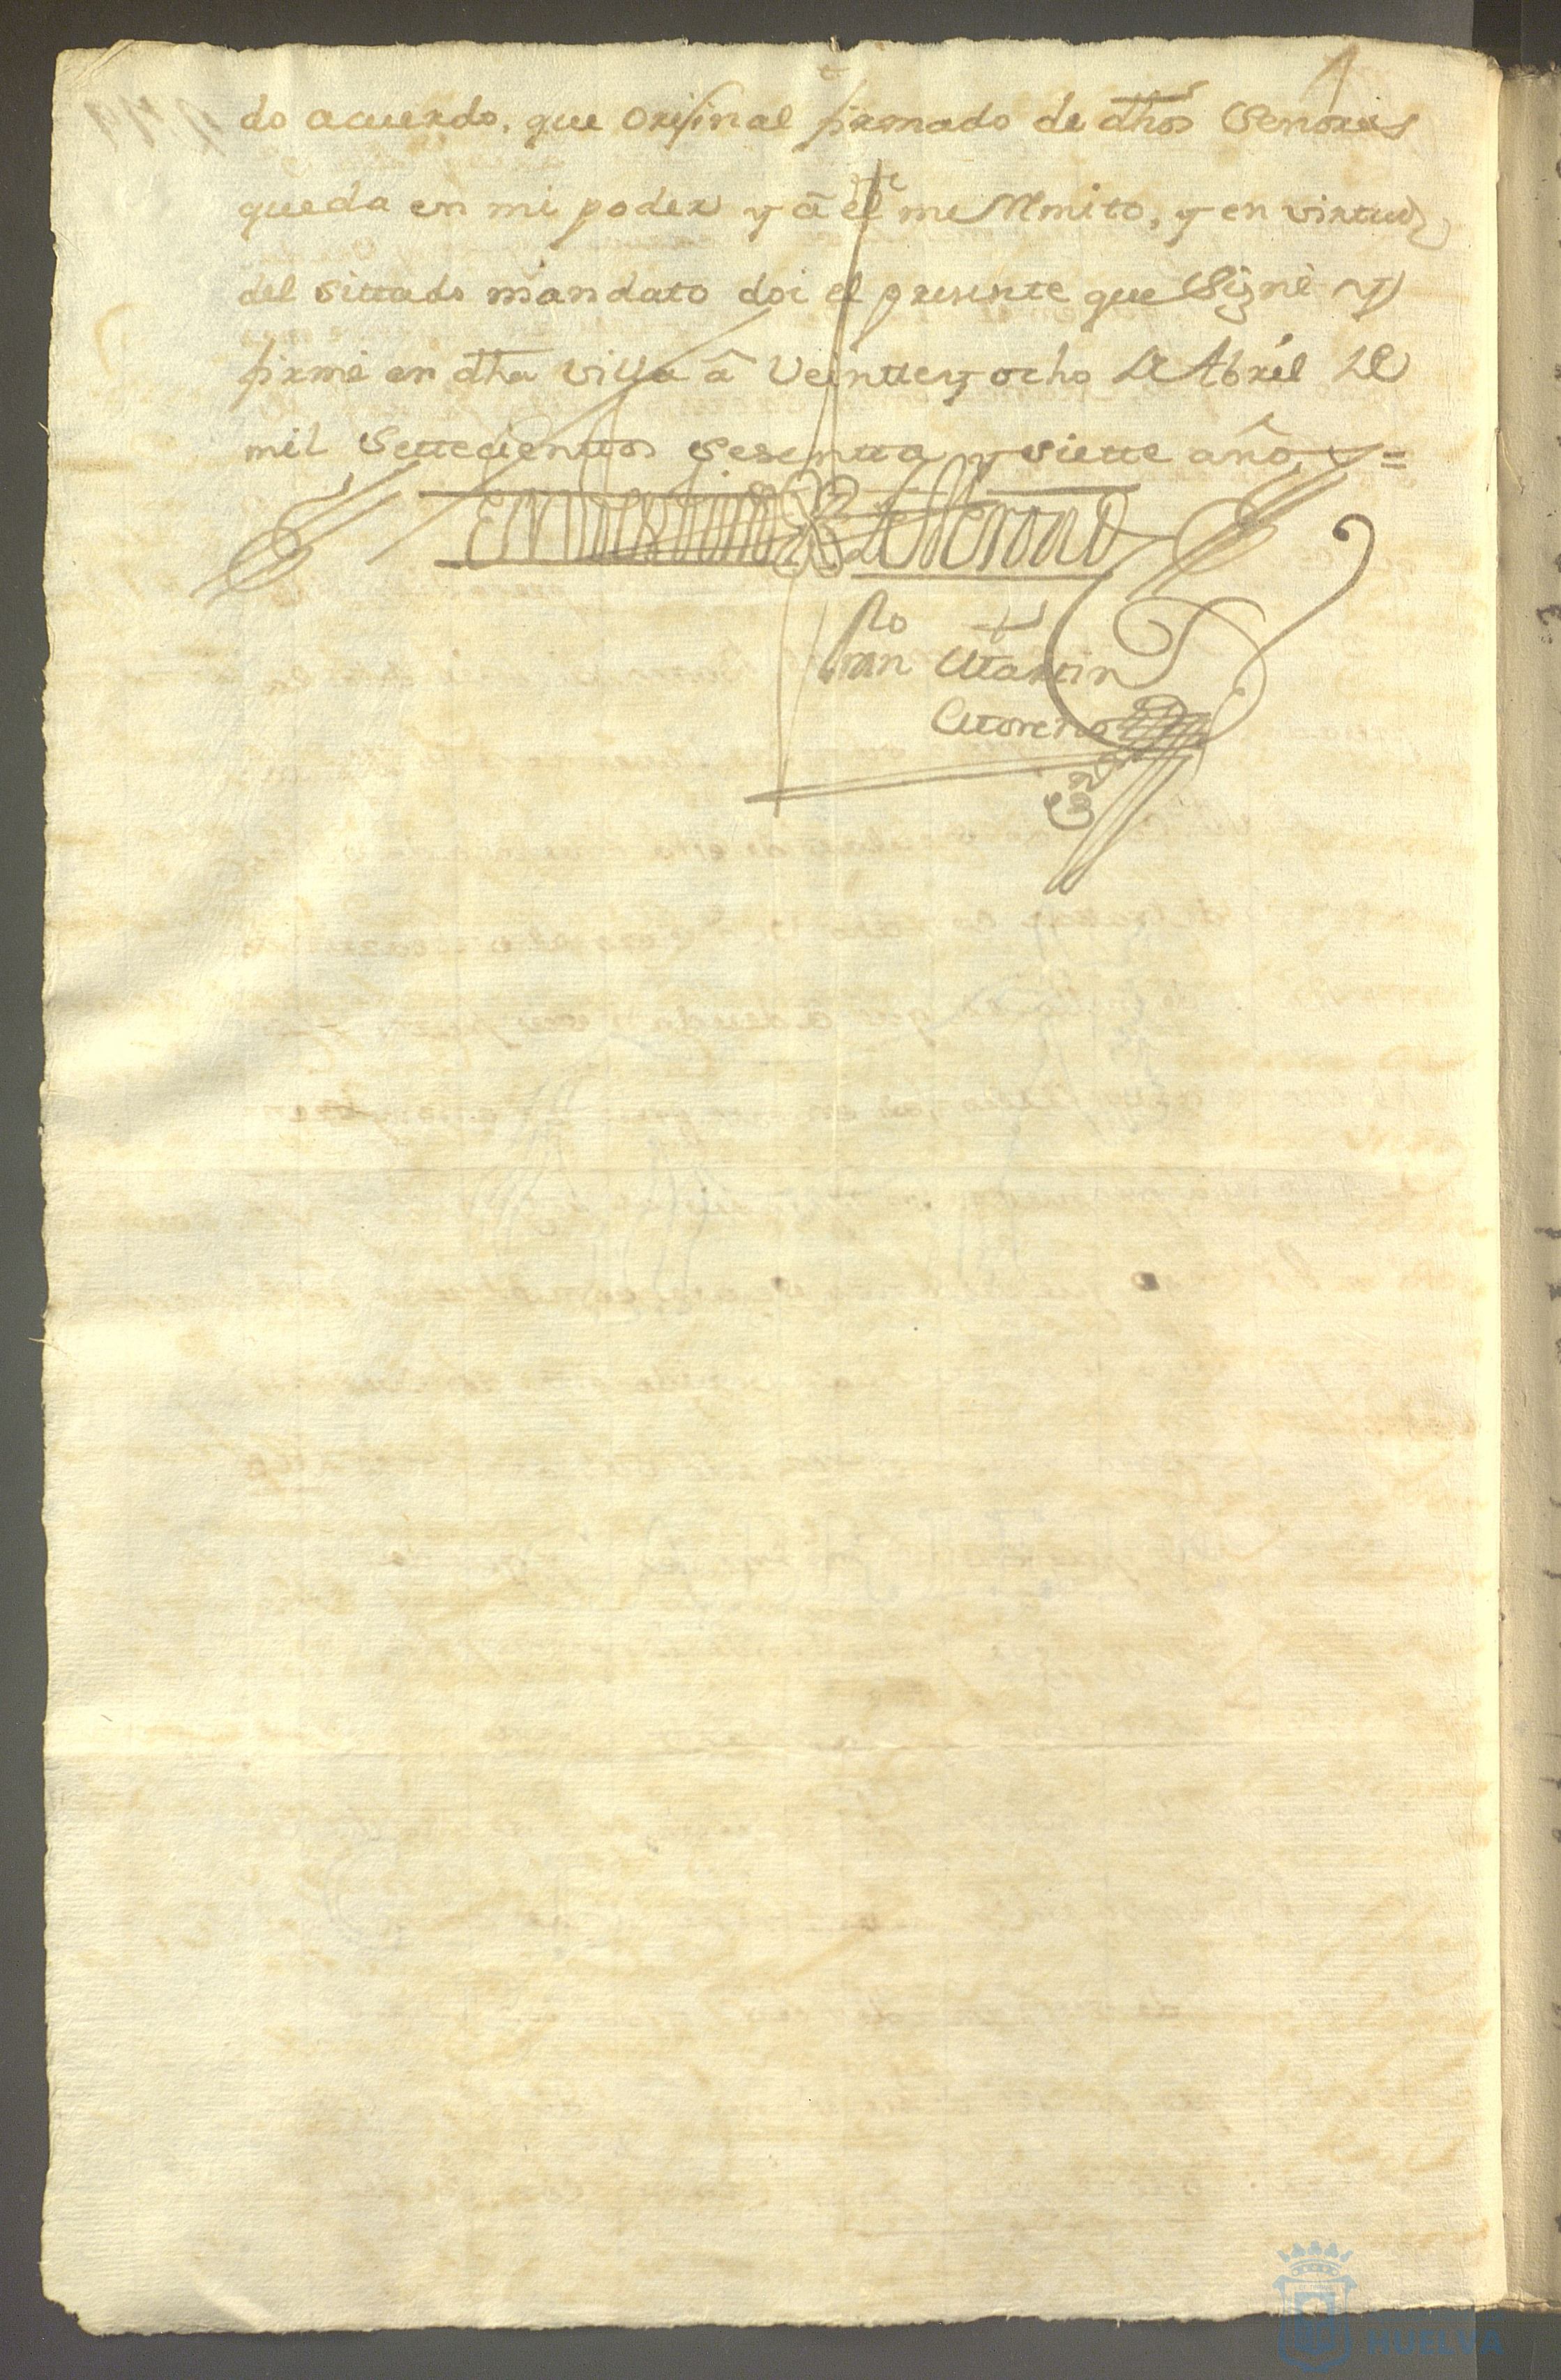 do acuerdo, que original firmado de dhos Señores
queda en mi poder y â el me Rmito, y en virtud
del sittado mandato doi el presente que signè y
firmè en dha villa â Veintte y ocho de Abril de
mil Settecienttos sesentta y siette años =
En testimo de Verdad
Juan Martin
Moreno
HUELVA